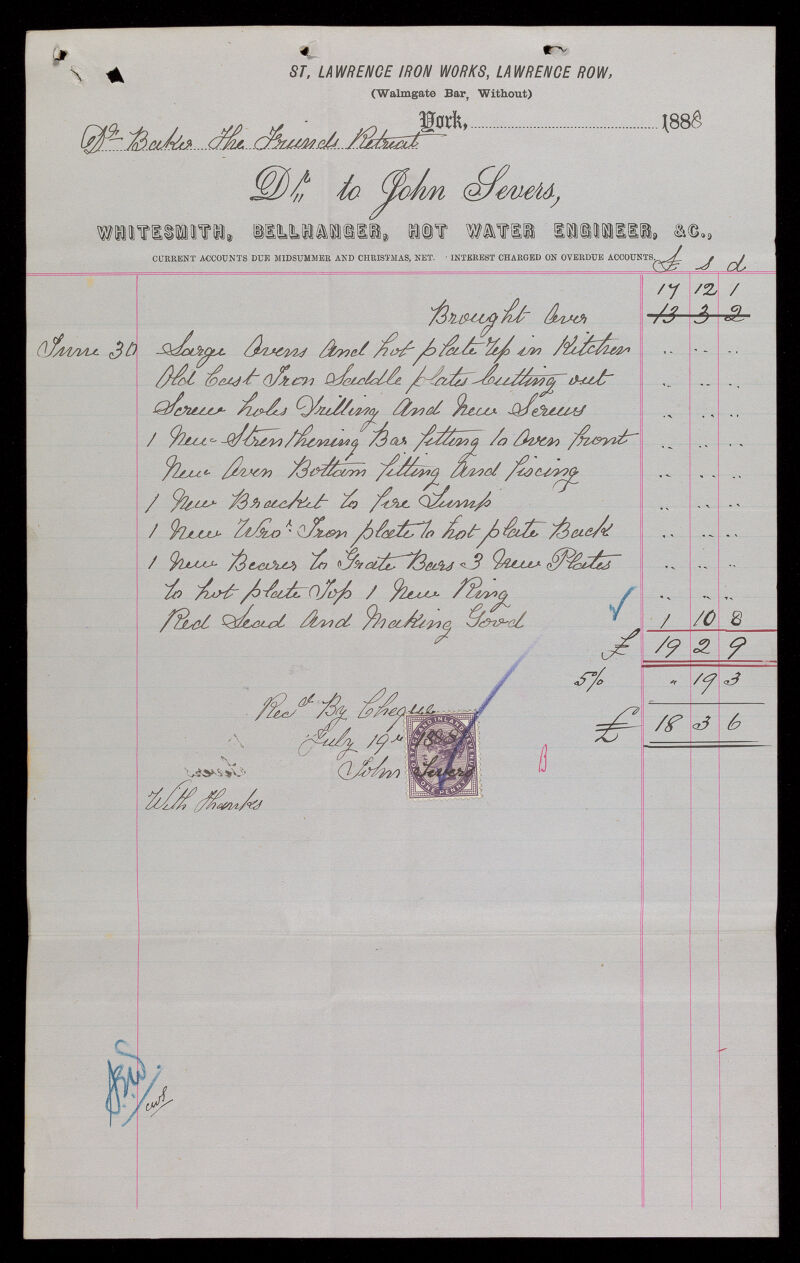 ST, LAWRENCE IRON WORKS, LAWRENCE ROW,
(Walmgate Bar, Without)
York, 1888
Dr Baker The Friends Retreat
Dr to John Severs,
WHITESMITH, BELLHANGER, HOT WATER ENGINEER, &C.,
CURRENT ACCOUNTS DUE MIDSUMMER AND CHRISTMAS, NET. INTEREST CHARGED ON OVERDUE ACCOUNTS.
£ s d
17 12 1
Brought Over 13 3 2
June 30 Large Ovens And hot plate Up in Kitchen " " "
Old Cast Iron Saddle plates Cutting out " " "
Screw holes Drilling And New Screws " " "
1 New Strenthening Bar fitting to Oven front " " "
New Oven Bottom fitting And fixing " " "
1 New Bracket to fire Lump " " "
1 New Wrot Iron plate to hot plate Back " " "
1 New Bearer to Grate Bars 3 New Plates " " "
to hot plate Top 1 New Ring " " "
Red Lead And Making Good 1 10 8
£ 19 2 9
5% " 19 3
£ 18 3 6
Recd By Cheque
July 19th 1888
John Severs
With Thanks
POSTAGE AND INLAND REVENUE
ONE PENNY
B
cws